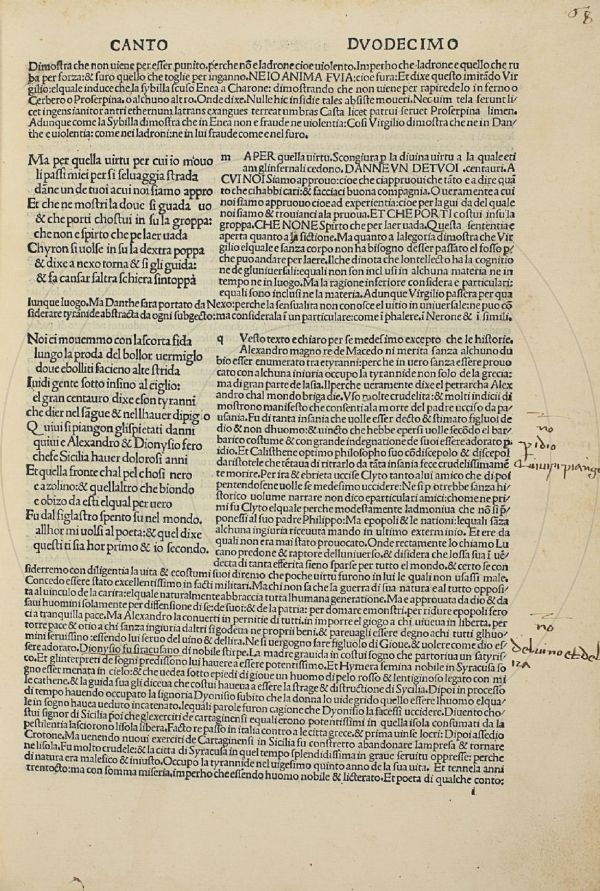 68
CANTO DVODECIMO
Dimostra che non uiene per esser punito. perche nõ e ladrone cioe uiolento. Impero che ladrone e quello che ru
ba per forza: & furo quello che toglie per inganno. NE IO ANIMA FVIA: cioe fura: Et dixe questo imitãdo Vir
gilio: elquale induce che la sybilla scuso Enea a Charone: dimostrando che non uiene per rapire do lo in ferno o
Cerbero o Proserpina. o alchuno altro. Onde dixe. Nulle hic insidie tales absiste moueri. Nec uim tela ferunt li
cet ingens ianitor antri ethernum latrans exangues terreat umbras Casta licet patrui seruet Proserpina limen.
Adunque come la Sybilla dimostra che in Enea non e fraude ne uiolentia: Cosi Virgilio dimostra che ne in Dan
the e uiolentia: come ne ladroni: ne in lui fraude come e nel furo.
Ma per quella uirtu per cui io mouo
li passi miei per si seluaggia strada
dãne un de tuoi a cui noi siamo appro
Et che ne mostri la doue si guada uo
& che porti chostui in su la groppa:
che non e spirto che pe laer uada
Chyron si uolse in su la dextra poppa
& dixe a nexo torna & si gli guida:
& fa cansar saltra schiera sintoppa
m A PER quella uirtu. Scongiura p la diuina uirtu a la quale eti
am gli infernali cedeno. DANNE VN DE TVOI .centauri. A
CVI NOI Siamo approuo: cioe che ci appruoui che tãto e a dire quã
to che ci habbi cari: & facciaci buona compagnia. O ueramente a cui
noi siamo appruouo cioe ad experientia: cioe per la gui da del quale
noi siamo & trouianci a la pruoua. ET CHE PORTI costui insu la
groppa. CHE NON E Spirto che per laer uada. Questa sententia e
aperta quanto a la fictione. Ma quanto a legoria dimostra che Vir
gilio elquale e sanza corpo non ha bisogno desser passato el fosso p
che puo andare per laere. Il che dinota che lontellecto ha la cognitio
ne de gluniuersali: equali non son inclusi in alchuna materia ne in
tempo ne in luogo. Ma la ragione inferiore considera e particulari:
equali sono inclusi ne la materia. Adunque Virgilio passera per qua
lunque luogo. Ma Danthe sara portato da Nexo: perche la sensualita non conosce el uitio in uniuersale: ne puo cõ
siderare tyrãnide abstracta da ogni subgecto: ma considerala ĩ un particulare: come ĩ phalere. ĩ Nerone & ĩ simili.
Noi ci mouemmo con la scorta fida
lungo la proda del bollor uermiglo
doue ebolliti facieno alte strida
I uidi gente sotto infino al ciglio:
el gran centauro dixe e son tyranni
che dier nel sãgue & nellhauer di piglo
Q uiui si piangon gli spietati danni
quiui e Alexandro & Dionysio fero
che fe Sicilia hauer dolorosi anni
Et quella fronte chal pel chosi nero
e azolino: & quellaltro che biondo
e obizo da esti el qual per uero
Fu dal figlastro spento su nel mondo.
allhor mi uolsi al poeta: & quel dixe
questi ti sia hor primo & io secondo.
q Vesto texto e chiaro per se medesimo excepto che le historie.
Alexandro magno re de Macedo ni merita sanza alchuno du
bio esser enumerato tra e tyranni: perche in uero sanza essere prouo
cato con alchuna iniuria occupo la tyrannide non solo de la grecia:
ma di gran parte de lasia. Il perche ueramente dixe el petrarcha Alex
andro chal mondo briga die. Vso molte crudelita: & molti indicii di
mostrono manifesto che consenti a la morte del padre ucciso da pa
usania. Fu di tanta insania che uolle esser decto & stimato figliuol de
dio & non dhuomo: & uĩndo che hebbe epersi uolle secõdo el bar
barico costume & con grande indegnatione de suoi essere adorato p
idio. Et Calisthene optimo philosopho suo cõdiscepolo & discepol
da ristotele che tẽtaua di ritrarlo da tãta insania fece crudelissimamẽ
te morire. Per ira & ebrieta uccise Clyto tanto a lui amico che di poi
pentendosene uolle se medesimo uccidere: Ne si potrebbe sanza hi
storico uolume narrare non dico eparticulari amici: chome ne pri
mi fu Clyto el quale perche modestamente ladmoniua che nõ si p
ponessi al suo padre Philippo: Ma epopoli & le nationi: lequali sãza
alchuna ingiuria riceuuta mando in ultimo exterminio. Et ere da
quali non era mai stato prouocato. Onde rectamente lo chiamo Lu
cano predone & raptore delluniuerso. & disidera che lossa sua ĩ uẽ
decta di tanta efferita sieno sparse per tutto el mondo. & certo se con
sideremo con diligentia la uita & ecostumi suoi diremo che poche uirtu furono in lui le quali non usassi male.
Concedo essere stato excellentissimo in facti militari. Ma chi non sa che la guerra di sua natura e al tutto opposi
ta al uinculo de la carita: elquale naturalmente abbraccia tutta lhumana generatione. Ma e approuata da dio & da
saui huomini solamente per diffensione di se: de suoi: & de la patria: per domare emonstri. per ridure epopoli fero
ci a tranquilla pace. Ma Alexandro la conuerti in pernitie di tutti. in imporre el giogo a chi uiueua in liberta. per
torre pace & otio a chi sanza ingiuria daltri si godeua ne proprii beni. & pareuagli essere degno a chi tutti glhuo
mini seruissino: essendo lui seruo del uino & dellira. Ne si uergogno fare figliuolo di Gioue. & uolere come dio es
sere adorato. Dionysio fu siracusano di nobile stirpe. La madre grauida in costui sogno che partoriua un satyris
co. Et glinterpreti de sogni predissono lui hauere a essere potentissimo. Et Hymera femina nobile in Syracusa so
gno esser menata in cielo: & che uedea sotto epiedi di gioue un huomo di pelo rosso & lentiginoso legato con mi
le cathene. & la guida sua gli diceua che costui haueua a essere la strage & distructione di Sycilia. Dipoi in processo
di tempo hauendo occupato la signoria Dyonisio subito che la donna lo uide grido quello essere lhuomo elqua
le in sogno haueа ueduto incatenato. lequali parole furon cagione che Dyonisio la facessi uccidere. Diuento cho
stui signor di Sicilia poi che glexerciti de cartaginensi equali erono potentissimi in quella isola consumati da la
pestilentia lasciorono lisola libera. Facto re passo in italia contro a le citta grece. & prima uinse locri: Dipoi assedio
Crotone. Ma uenendo nuoui exerciti de Cartaginensi in Sicilia fu constretto abandonare lampresa & tornare
ne lisola. Fu molto crudele: & la citta di Syracusa in quel tempo splendidissima in graue seruitu oppresse: perche
di natura era malefico & iniusto. Occupo la tyrannide nel uigesimo quinto anno de la sua uita. Et tennela anni
trentocto: ma con somma miseria. impero che essendo huomo nobile & licterato. Et poeta di qualche conto:
i